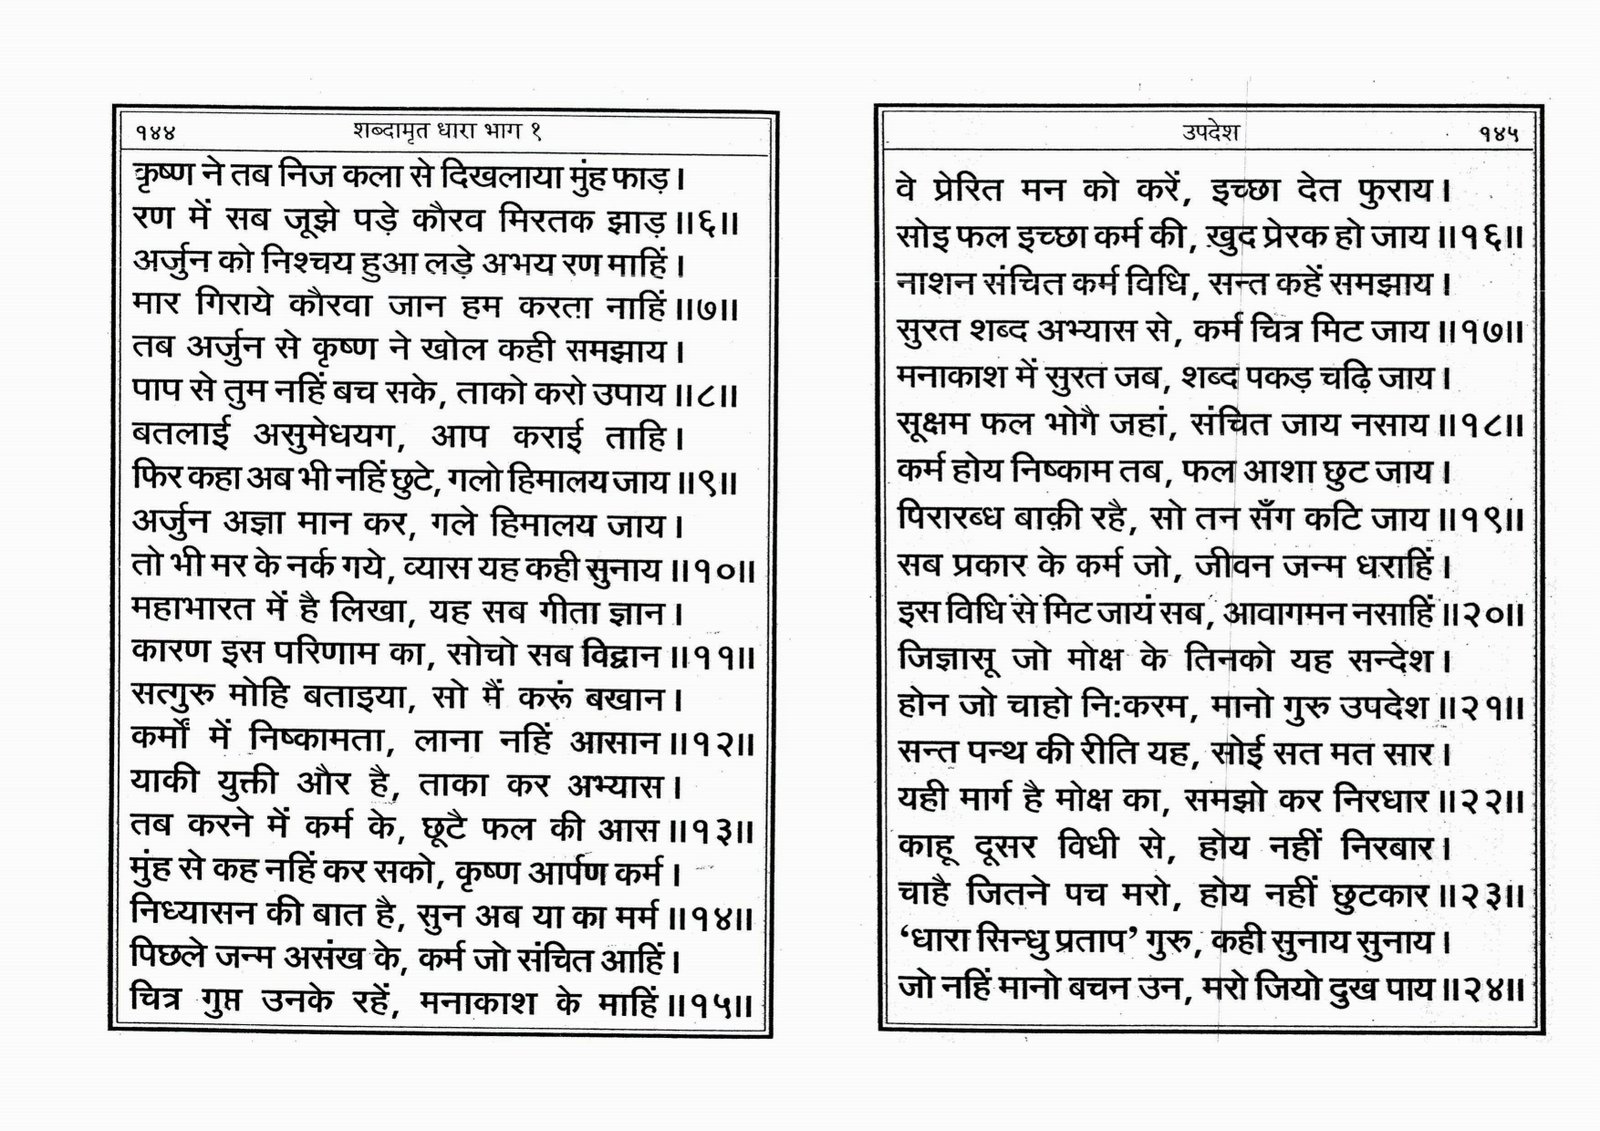 १४४ शब्दामृत धारा भाग १
कृष्ण ने तब निज कला से दिखलाया मुंह फाड़ ।
रण में सब जूझे पड़े कौरव मिरतक झाड़ ॥६॥
अर्जुन को निश्चय हुआ लड़े अभय रण माहिं ।
मार गिराये कौरवा जान हम करता नाहिं ॥७॥
तब अर्जुन से कृष्ण ने खोल कही समझाय ।
पाप से तुम नहिं बच सके, ताको करो उपाय ॥८॥
बतलाई असुमेधयग, आप कराई ताहि ।
फिर कहा अब भी नहिं छुटे, गलो हिमालय जाय ॥९॥
अर्जुन अज्ञा मान कर, गले हिमालय जाय ।
तो भी मर के नर्क गये, व्यास यह कही सुनाय ॥१०॥
महाभारत में है लिखा, यह सब गीता ज्ञान ।
कारण इस परिणाम का, सोचो सब विद्वान ॥११॥
सत्गुरु मोहि बताइया, सो मैं करूं बखान ।
कर्मों में निष्कामता, लाना नहिं आसान ॥१२॥
याकी युक्ती और है, ताका कर अभ्यास ।
तब करने में कर्म के, छूटै फल की आस ॥१३॥
मुंह से कह नहिं कर सको, कृष्ण आर्पण कर्म ।
निध्यासन की बात है, सुन अब या का मर्म ॥१४॥
पिछले जन्म असंख के, कर्म जो संचित आहिं ।
चित्र गुप्त उनके रहें, मनाकाश के माहिं ॥१५॥
उपदेश १४५
वे प्रेरित मन को करें, इच्छा देत फुराय ।
सोइ फल इच्छा कर्म की, ख़ुद प्रेरक हो जाय ॥१६॥
नाशन संचित कर्म विधि, सन्त कहें समझाय ।
सुरत शब्द अभ्यास से, कर्म चित्र मिट जाय ॥१७॥
मनाकाश में सुरत जब, शब्द पकड़ चढ़ि जाय ।
सूक्षम फल भोगै जहां, संचित जाय नसाय ॥१८॥
कर्म होय निष्काम तब, फल आशा छुट जाय ।
पिरारब्ध बाक़ी रहै, सो तन सँग कटि जाय ॥१९॥
सब प्रकार के कर्म जो, जीवन जन्म धराहिं ।
इस विधि से मिट जायं सब, आवागमन नसाहिं ॥२०॥
जिज्ञासू जो मोक्ष के तिनको यह सन्देश ।
होन जो चाहो नि:करम, मानो गुरु उपदेश ॥२१॥
सन्त पन्थ की रीति यह, सोई सत मत सार ।
यही मार्ग है मोक्ष का, समझो कर निरधार ॥२२॥
काहू दूसर विधी से, होय नहीं निरबार ।
चाहै जितने पच मरो, होय नहीं छुटकार ॥२३॥
‘धारा सिन्धु प्रताप’ गुरु, कही सुनाय सुनाय ।
जो नहिं मानो बचन उन, मरो जियो दुख पाय ॥२४॥